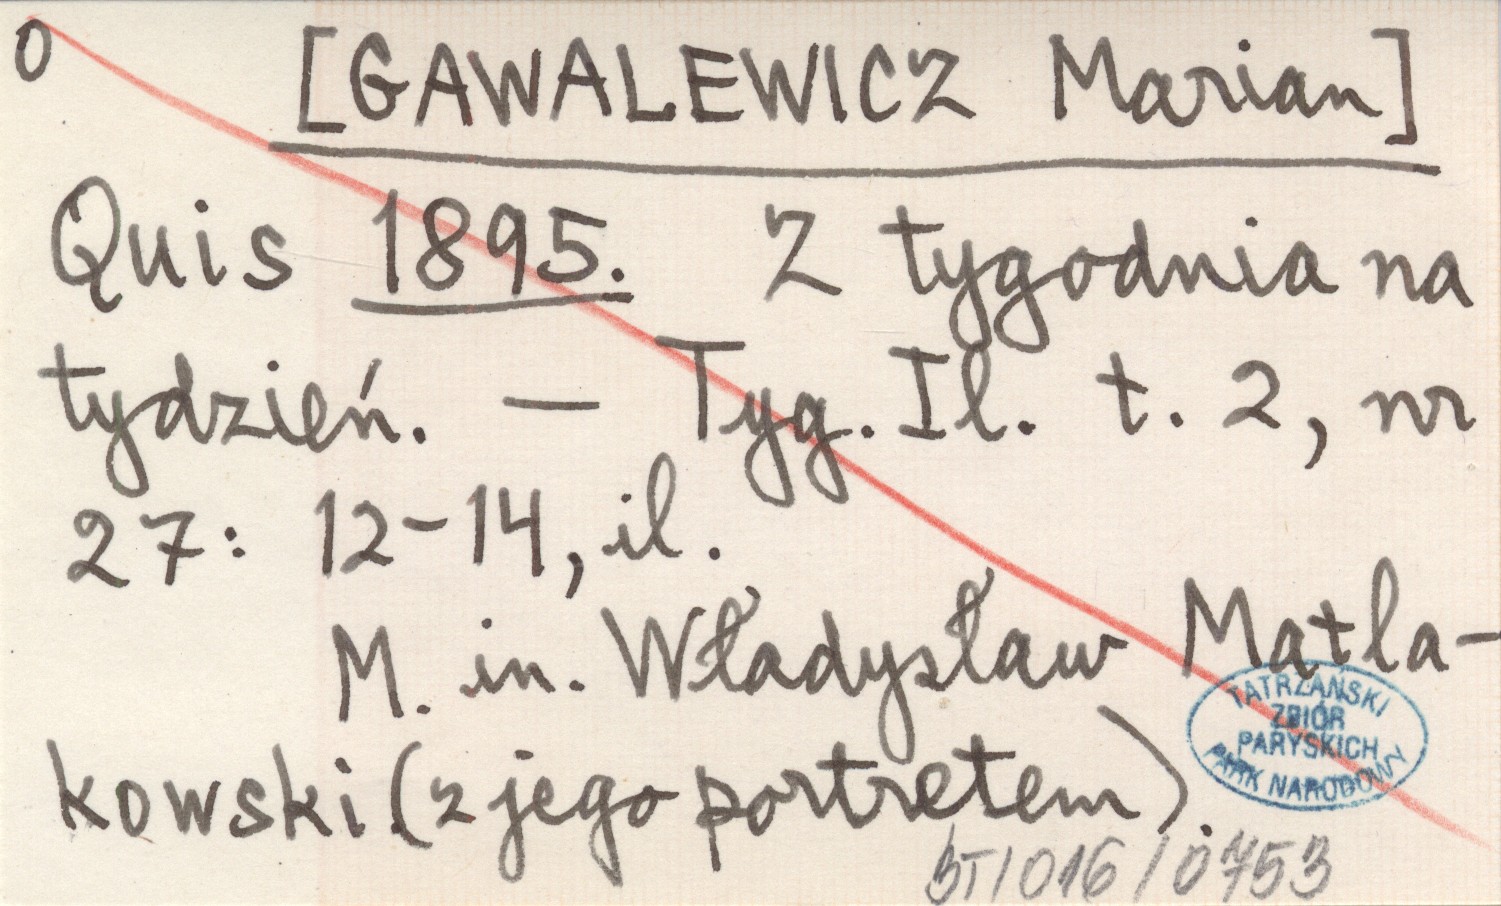 0 [GAWALEWICZ Marian]
Quis 1895. Z tygodnia na
tydzień. — Tyg. Il. t. 2, nr
27: 12-14, il.
M. in. Władysław Matla-
kowski (z jego portretem).
TATRZAŃSKI
ZBIÓR
PARYSKICH
PARK NARODOWY
BT/016/0753